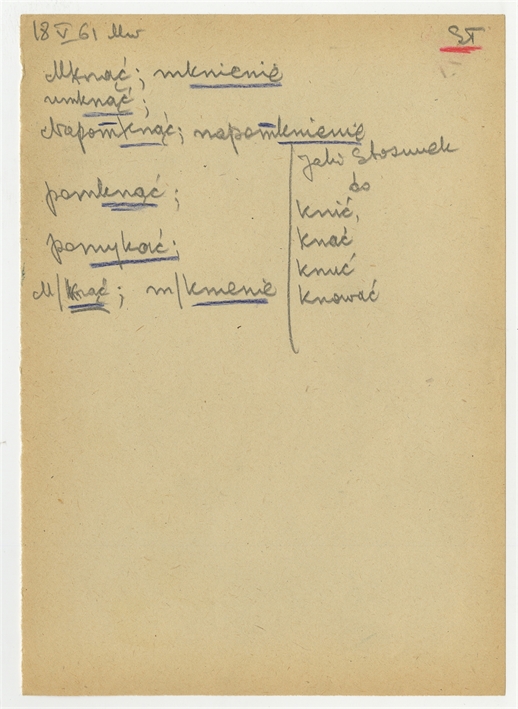 18 V 61 Mw
ST
Mknąć; mknienie
umknąć;
Napomknąć; napomknienie
Jaki Stosunek
do
pomknąć;
knić,
knać
pomykać;
knuć
M/knąć; m/kmenie
knować